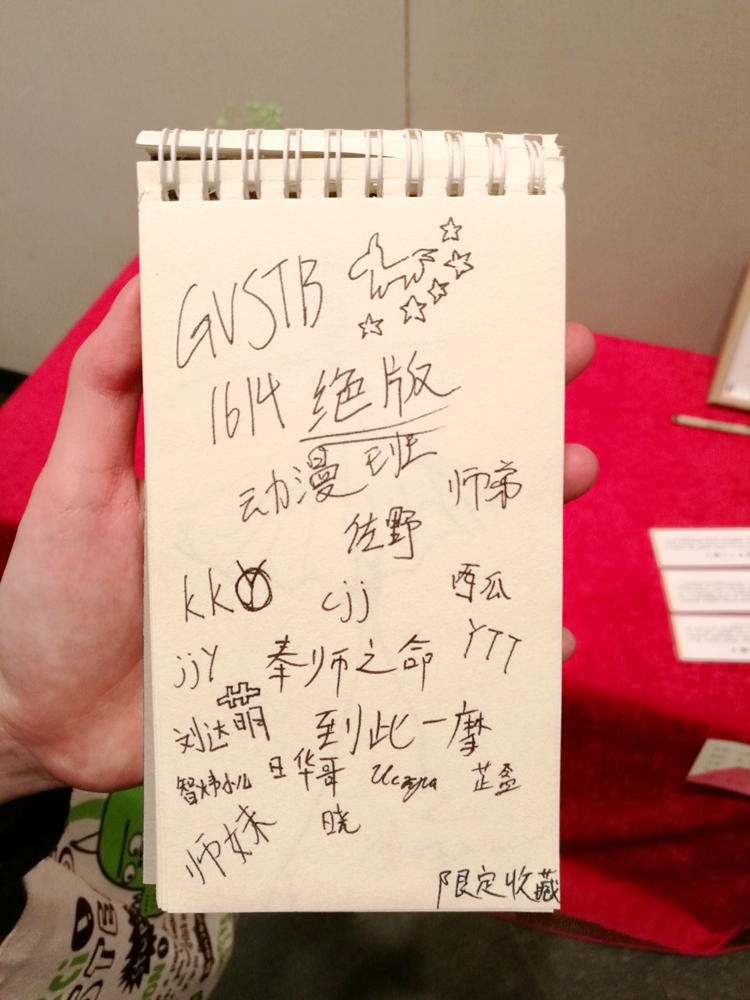 GVSTB
1614 绝版
动漫班
师弟
佐野
kkY cjj 西瓜
jjy 奉师之命 YTT
刘达萌 到此一摩
智炜小儿 日华哥 芷盈
师妹 晓
限定收藏